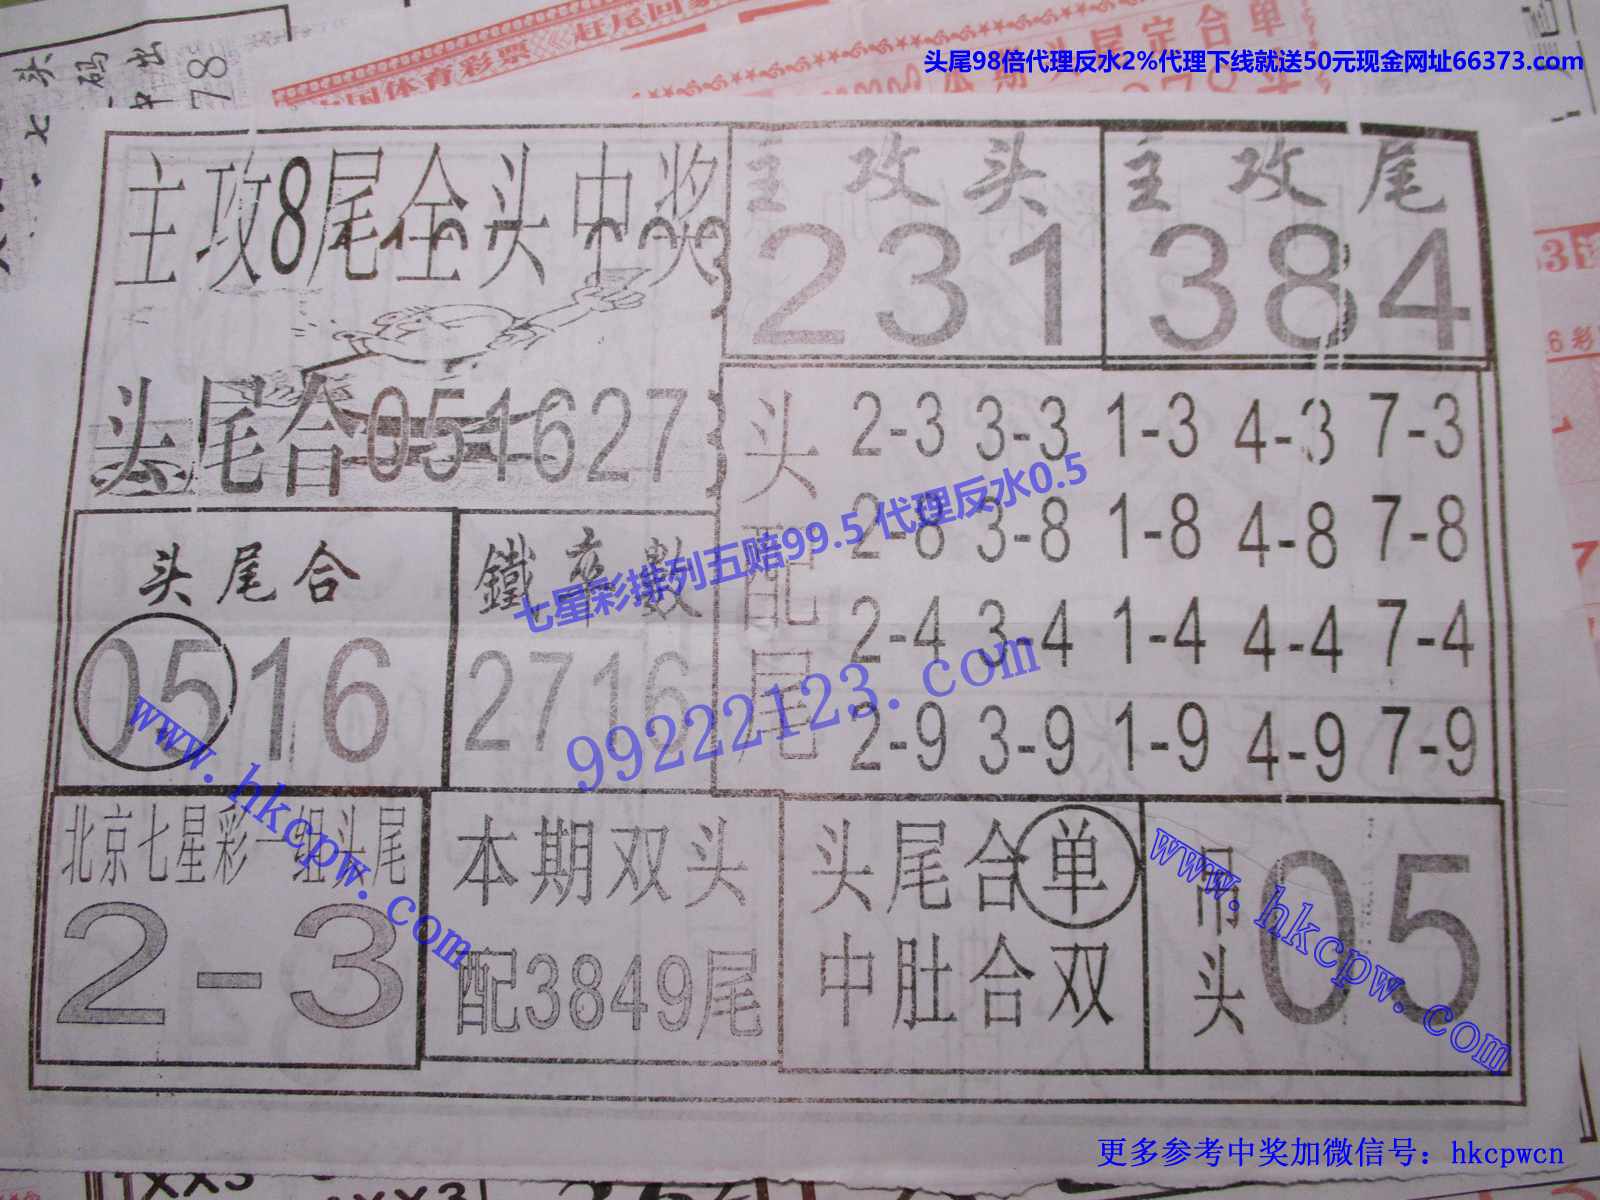 头尾98倍代理反水2%代理下线就送50元现金网址66373.com
中国体育彩票
头 码 出
78
主攻8尾全头中奖
主攻头
231
主攻尾
384
头尾合051627
头配尾
2-3 3-3 1-3 4-3 7-3
2-8 3-8 1-8 4-8 7-8
2-4 3-4 1-4 4-4 7-4
2-9 3-9 1-9 4-9 7-9
七星彩排列五赔99.5 代理反水0.5
99222123.com
头尾合
0516
鐵卒數
2716
www.hkcpw.com
北京七星彩一组头尾
2-3
本期双头
配3849尾
头尾合单
中肚合双
吊头
05
www.hkcpw.com
更多参考中奖加微信号：hkcpwcn